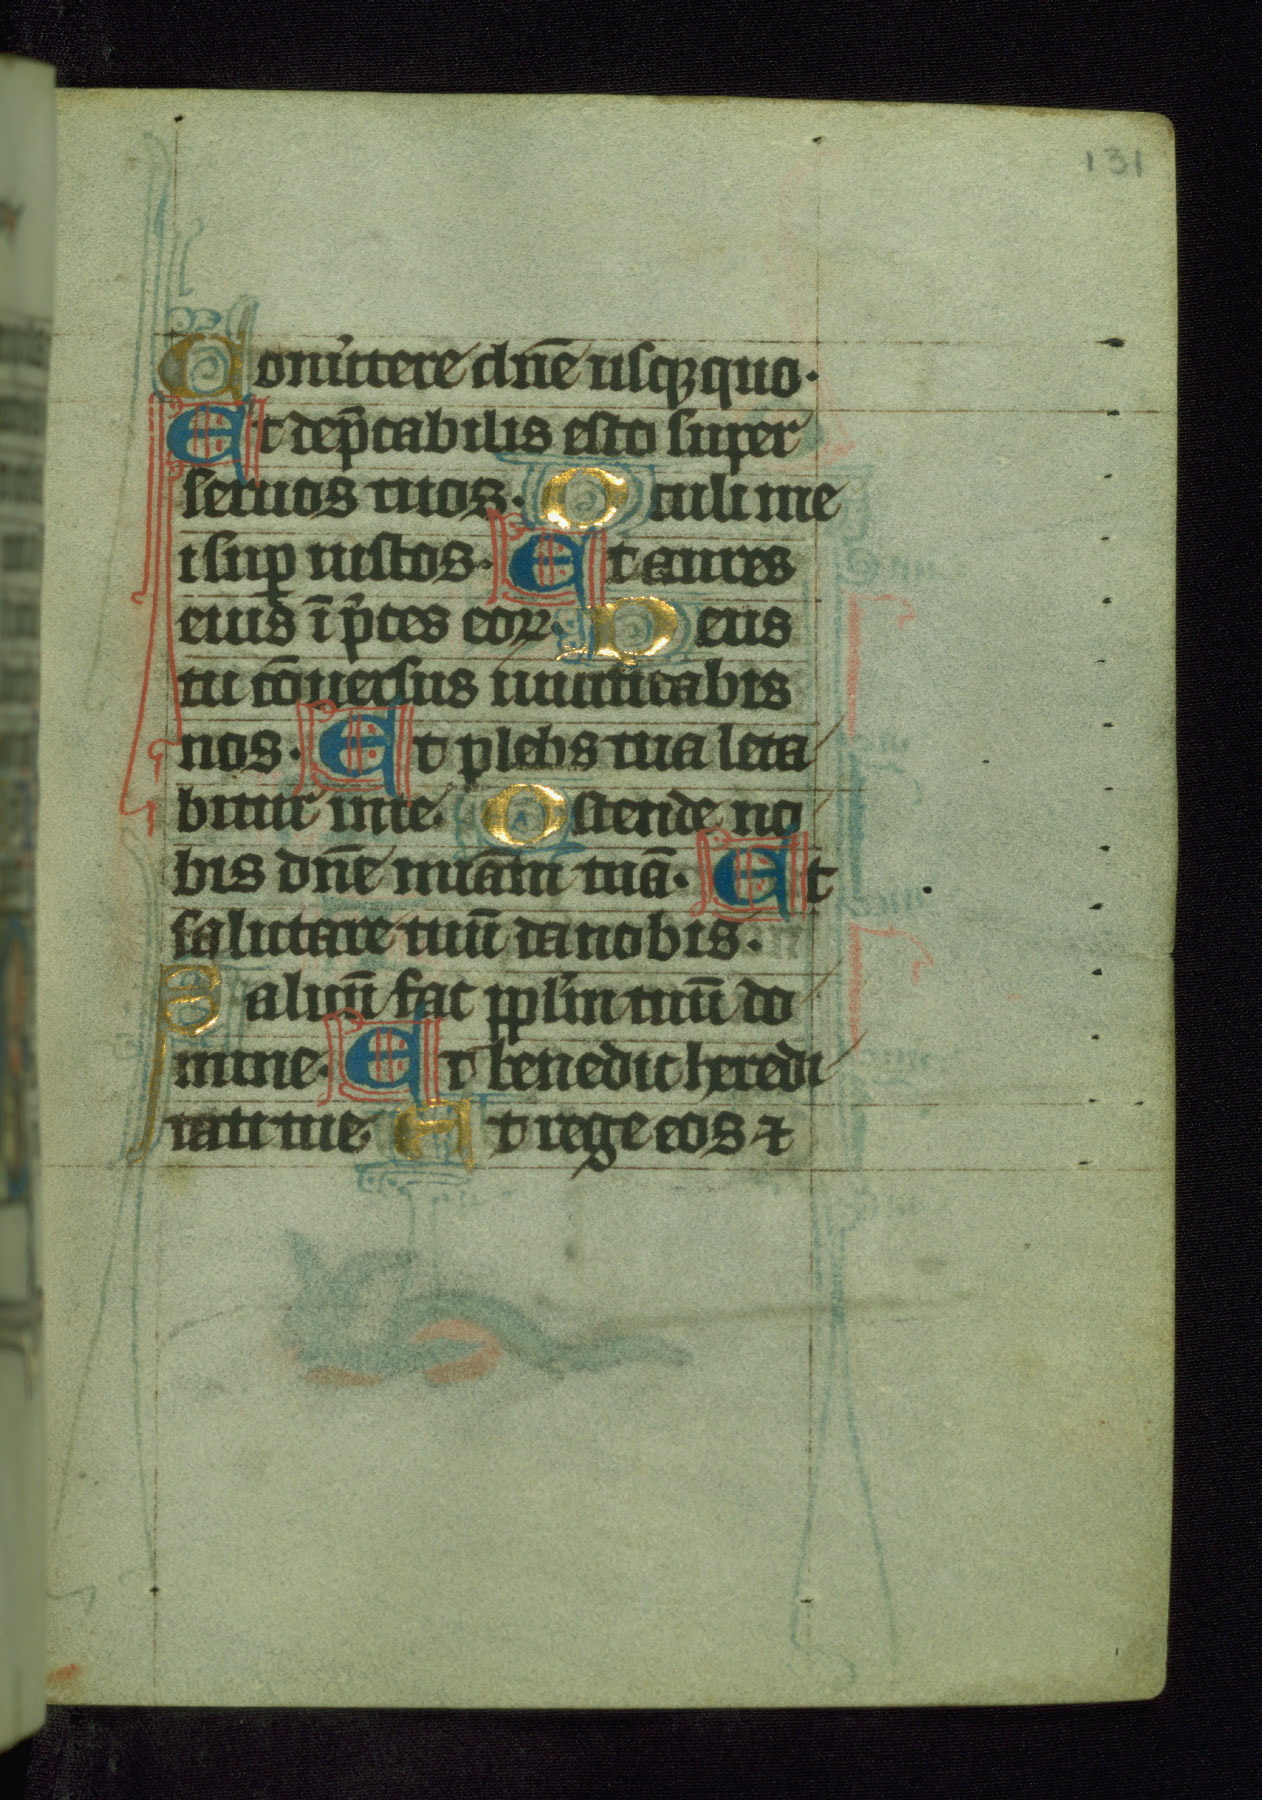 131
Conu̾tere dn̄e usqꝫquo·
Et dep̄cabilis esto super
seruos tuos· Oculi me
i sup̱ iustos· Et aures
eius ī p̄ces eoꝝ· Deus
tu cōuersus uiuificabis
nos· Et plebs tua leta
bitur in te· Ostende no
bis dn̄e mīam tuā· Et
salutare tuū da nobis·
Saluū fac pplm̄ tuū do
mine· Et benedic heredi
tati tue· Et rege eos ⁊